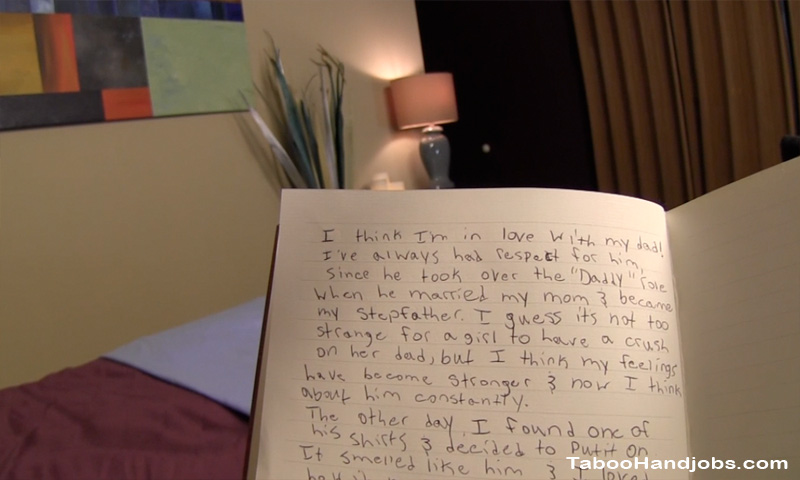 I think I'm in love with my dad!
I've always had respect for him,
since he took over the "Daddy" role
when he married my mom & became
my stepfather. I guess its not too
strange for a girl to have a crush
on her dad, but I think my feelings
have become stronger & now I think
about him constantly.
The other day, I found one of
his shirts & decided to put it on
It smelled like him & I loved
TabooHandjobs.com